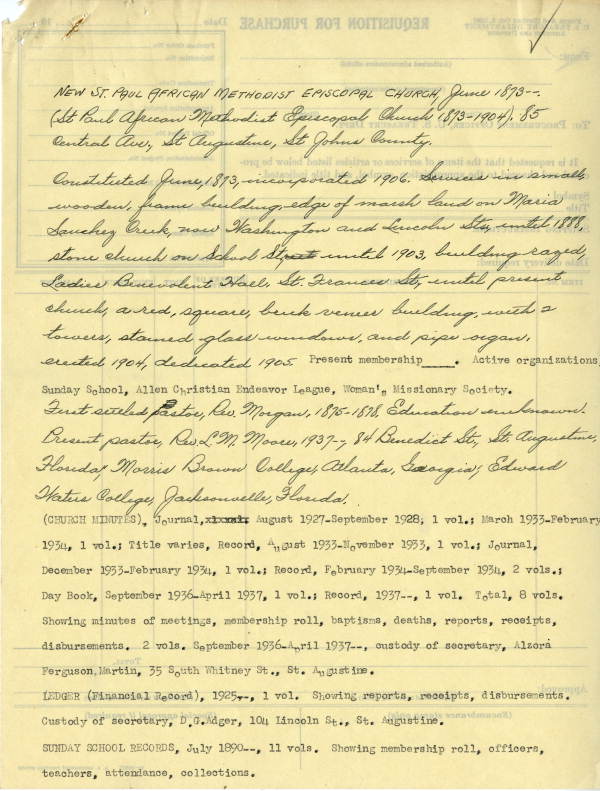 NEW ST. PAUL AFRICAN METHODIST EPISCOPAL CHURCH, June 1873--.
(St Paul African Methodist Episcopal Church 1873-1904). 85
Central Ave, St Augustine, St Johns County.
Constituted June, 1873, incorporated 1906. Services in small,
wooden, frame building, edge of marsh land on Maria
Sanchez Creek, now Washington and Lincoln Sts, until 1888,
stone church on School Street until 1903, building razed,
Ladies Benevolent Hall, St. Frances St, until present
church, a red, square, brick veneer building, with 2
towers, stained glass windows, and pipe organ,
erected 1904, dedicated 1905. Present membership____. Active organizations,
Sunday School, Allen Christian Endeavor League, Woman's Missionary Society.
First settled Pastor, Rev. Morgan, 1875-1878, Education unknown.
Present pastor, Rev. L. M. Moore, 1937--, 84 Benedict St, St. Augustine,
Florida; Morris Brown College, Atlanta, Georgia; Edward
Waters College, Jacksonville, Florida.
(CHURCH MINUTES), Journal, August 1927-September 1928, 1 vol.; March 1933-February
1934, 1 vol.; Title varies, Record, August 1933-November 1933, 1 vol.; Journal,
December 1933-February 1934, 1 vol.; Record, February 1934-September 1934, 2 vols.;
Day Book, September 1936-April 1937, 1 vol.; Record, 1937--, 1 vol. Total, 8 vols.
Showing minutes of meetings, membership roll, baptisms, deaths, reports, receipts,
disbursements. 2 vols. September 1936-April 1937--, custody of secretary, Alzora
Ferguson, Martin, 35 South Whitney St., St. Augustine.
LEDGER (Financial Record), 1925--, 1 vol. Showing reports, receipts, disbursements.
Custody of secretary, D.C. Adger, 104 Lincoln St., St. Augustine.
SUNDAY SCHOOL RECORDS, July 1890--, 11 vols. Showing membership roll, officers,
teachers, attendance, collections.